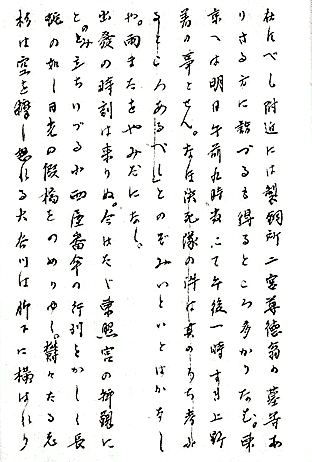 在すべし附近には製銅所二宮尊徳翁の墓等あ
りさる方に詣づるも得るところ多かりなむ。東
京へは明日午前九時發にて午後一時すぎ上野
着の事とせん。なほ決死隊の件は真のうち考ふ
ところあるべしとのぞみいといとはかなし
や。雨またをやみだになし。
出發の時刻は来りぬ。今はたゞ東照宮の御親に
とのみ立ちいづる小西屋番傘の行列とかしく長
蛇の如し日光の假橋をのめりゆく。欝々たる老
杉は空を摩し怒れる大谷川は脚下に横はれり